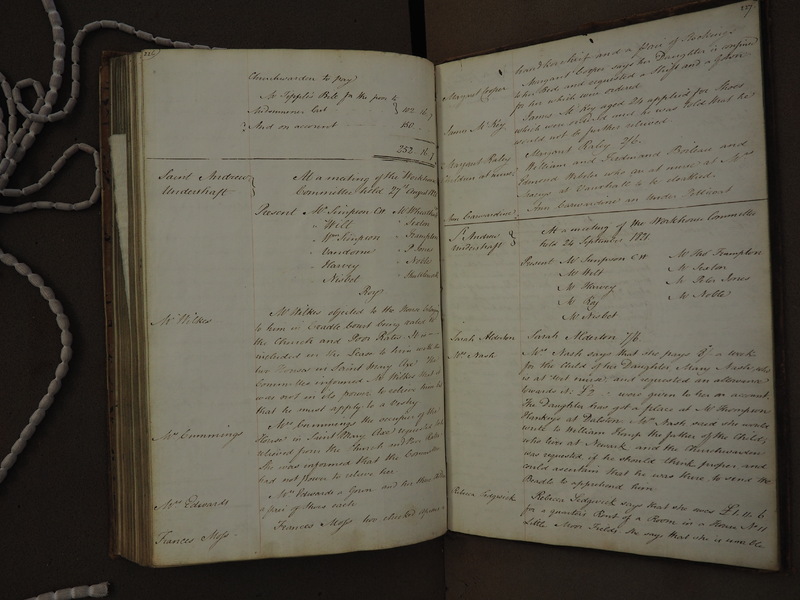 226
Churchwarden to pay
Mr Tipple's Bill for the year to
Midsummer last } 102. 16. 7
And on account 150
252. 16. 7
Saint Andrew
Undershaft }
At a meeting of the Workhouse
Committee held 27th August 1821
Present Mr Simpson CW Mr Wheatland
" Wilt - Sexton
" Wm Simpson - Frampton
" Vandome - P Jones
" Harvey - Noble
" Nisbet
Roy
Mr Wilkes
Mr Wilkes objected to the House belonging
to him in Exadle Court being rated to
the Church and Poor Rates. It is
included in the Lease to him with his
two Houses in Saint Mary Axe The
Committee informed Mr Wilkes that it
was not in their power to relieve him but
that he must apply to a Vestry
Mrs Cummings
Mrs Cummings the occupier of the
House in Saint Mary Axe requested to be
relieved from the Church and Poor Rates
She was informed that the Committee
had not power to relieve her
Mrs Edwards
Mrs Edwards a Gown and her three children
a pair of Shoes each
Frances Moss
Frances Moss two checked aprons
227
two Shifts and a Pair of Stockings
Margaret Cooper
Margaret Cooper says her Daughter is confined
to her Bed and requested a Shift and a Gown
for her which were ordered
James McKoy
James McKoy aged 24 applied for Shoes
which were ordered and he was told that he
would not be further relieved
Margaret Raley
Margaret Raley 2/6.
Children at nurse
William and Ferdinand Boileau and
Edmund Webster who are at nurse at Mrs
at Vauxhall to be cloathed.
Ann Carwardine
Ann Carwardine an under Petticoat
St Andrew
Undershaft }
At a meeting of the Workhouse Committee
held 24 September 1821.
Present Mr Simpson CW Mr Thos Frampton
Mr Wilt Mr Sexton
Mr Harvey Mr Peter Jones
Mr Roy Mr Noble
Mr Nisbet
Sarah Alderton
Sarah Alderton 7/6
Mrs Nash
Mrs Nash says that she pays 3/- a week
for the Child of her Daughter Mary Nash who
is at Wet nurse and requested an allowance
towards it. £2 - was given to her on account
The Daughter has got a place at Mr Thompsons
Hankeys at Dalston. Mrs Nash said she would
write to William Kemp the father of the Child,
who lives at Newark and the Churchwarden
was requested if he should think proper and
could ascertain that he was there to send the
Beadle to apprehend him
Rebecca Sedgwick
Rebecca Sedgwick says that she owes £1. 11. 6
for a quarters Rent of a Room in a House No 11
Little Moor Fields She says that she is unable